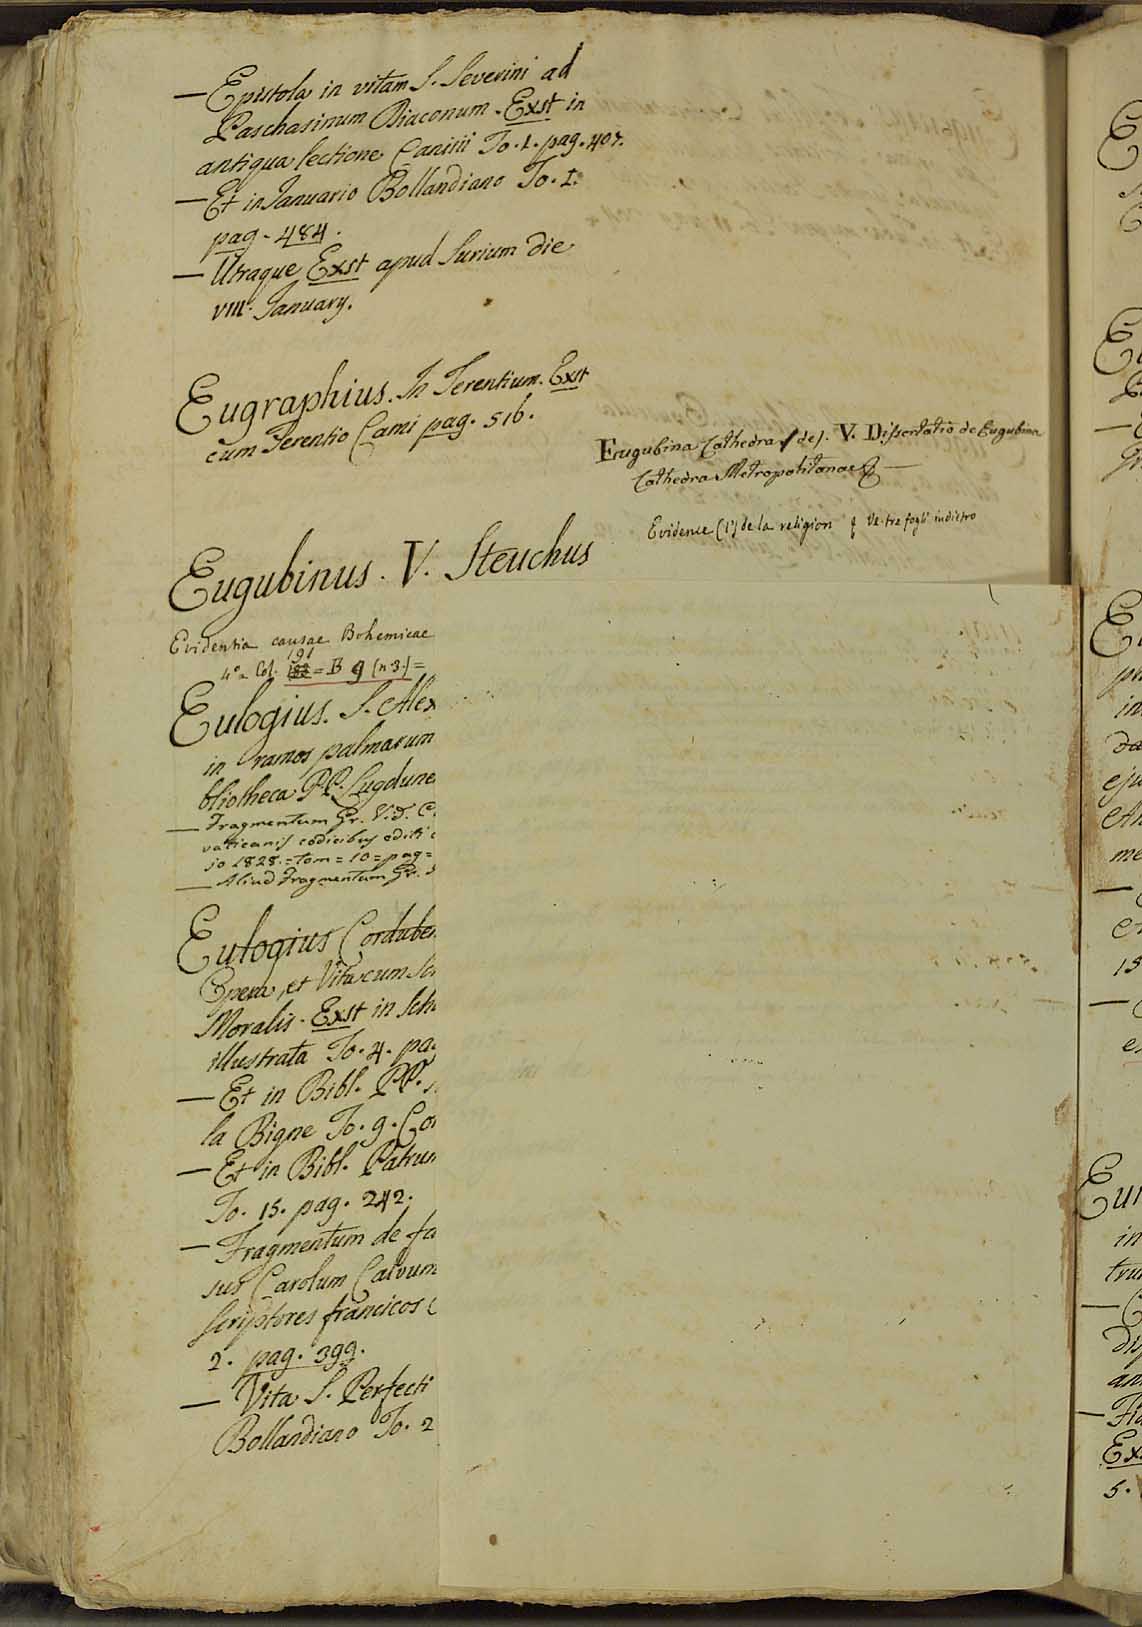 — Epistola in vitam S. Severini ad
Paschasinum Diaconum. Exst in
antiqua lectione Canisii To. 1. pag. 407.
— Et in Januario Bollandiano To. I.
pag. 484.
— Utraque Exst apud Surium die
VIII. January.
Eugraphius. In Terentium. Exst
cum Terentio Cami pag. 516.
Eugubina Cathedra (de). V. Dissertatio de Eugubina
Cathedra Metropolitana
Evidence (l') de la religion ve. tre fogli indietro
Eugubinus. V. Steuchus
Evidentia causae Bohemicae
4° Col. 191 = B 9 (n 3.) =
Eulogius. S. Alex
in ramos palmarum
bliotheca P.P. Lugdune
— Fragmentum Gr. Vid. C.
vaticanis codicibus editi
jo 1828. = tom = 10 = pag =
— Aliud Fragmentum Gr.
Eulogius Corduben
Opera, et Vita cum Sc
Moralis. Exst in Sch
illustrata To. 4. pa
— Et in Bibl. PP.
la Bigne To. 9. Co
— Et in Bibl. Patrum
To. 15. pag. 242.
— Fragmentum de fa
sub Carolum Calvum
Scriptores francicos
2. pag. 399.
— Vita S. Perfecti
Bollandiano To. 2